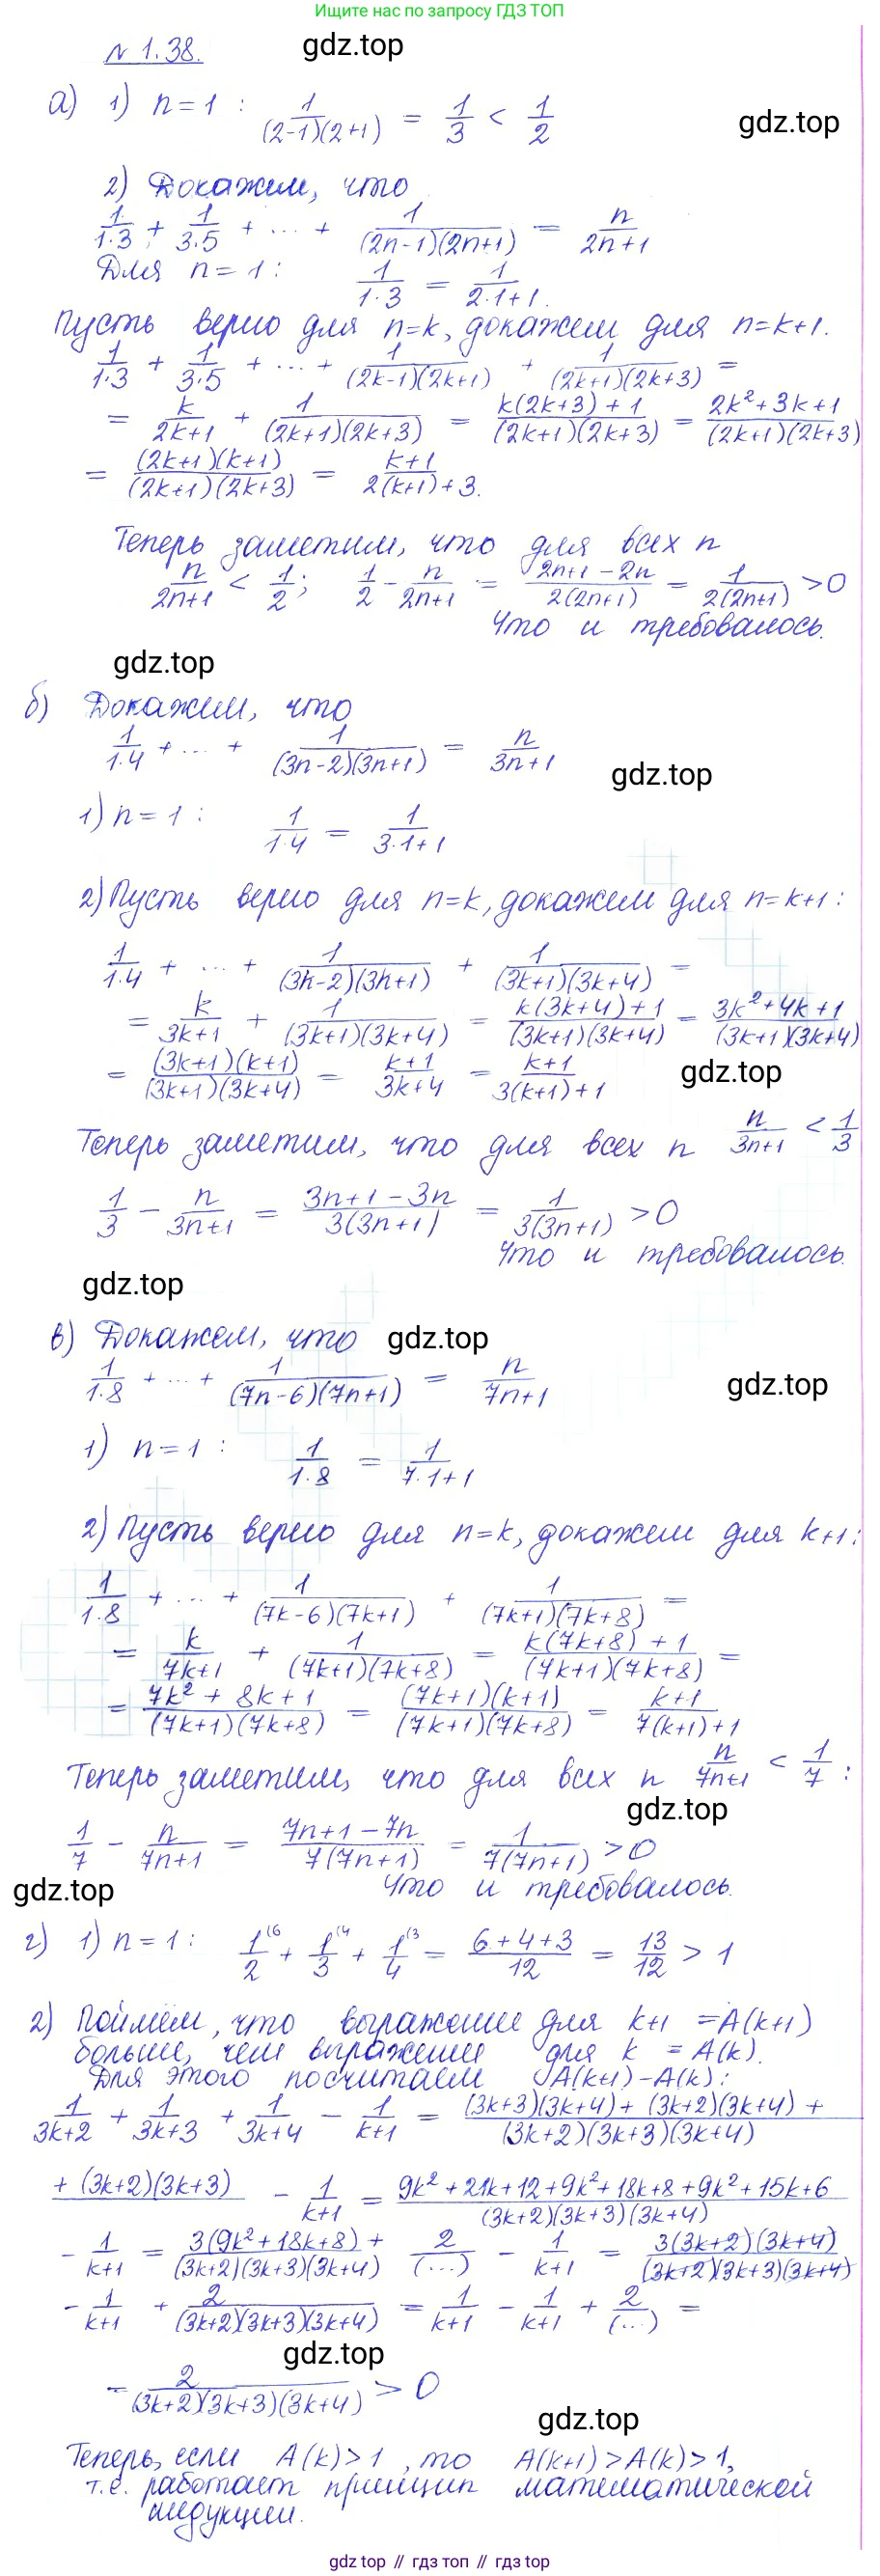 Ищите нас по запросу ГДЗ ТОП
N 1.38. gdz.top
а) 1) n=1 : 1/((2-1)(2+1)) = 1/3 < 1/2
gdz.top
2) Докажем, что
1/(1·3) + 1/(3·5) + ... + 1/((2n-1)(2n+1)) = n/(2n+1)
Для n=1: 1/(1·3) = 1/(2·1+1).
Пусть верно для n=k, докажем для n=k+1.
1/(1·3) + 1/(3·5) + ... + 1/((2k-1)(2k+1)) + 1/((2k+1)(2k+3)) =
= k/(2k+1) + 1/((2k+1)(2k+3)) = (k(2k+3)+1)/((2k+1)(2k+3)) = (2k²+3k+1)/((2k+1)(2k+3))
= ((2k+1)(k+1))/((2k+1)(2k+3)) = (k+1)/(2(k+1)+3).
Теперь заметим, что для всех n
n/(2n+1) < 1/2; 1/2 - n/(2n+1) = (2n+1-2n)/(2(2n+1)) = 1/(2(2n+1)) > 0
Что и требовалось.
gdz.top
б) Докажем, что
1/(1·4) + ... + 1/((3n-2)(3n+1)) = n/(3n+1)
gdz.top
1) n=1 : 1/(1·4) = 1/(3·1+1)
2) Пусть верно для n=k, докажем для n=k+1:
1/(1·4) + ... + 1/((3k-2)(3k+1)) + 1/((3k+1)(3k+4)) =
= k/(3k+1) + 1/((3k+1)(3k+4)) = (k(3k+4)+1)/((3k+1)(3k+4)) = (3k²+4k+1)/((3k+1)(3k+4))
= ((3k+1)(k+1))/((3k+1)(3k+4)) = (k+1)/(3k+4) = (k+1)/(3(k+1)+1)
gdz.top
Теперь заметим, что для всех n n/(3n+1) < 1/3
1/3 - n/(3n+1) = (3n+1-3n)/(3(3n+1)) = 1/(3(3n+1)) > 0
Что и требовалось.
gdz.top
в) Докажем, что gdz.top
1/(1·8) + ... + 1/((7n-6)(7n+1)) = n/(7n+1)
gdz.top
1) n=1 : 1/(1·8) = 1/(7·1+1)
2) Пусть верно для n=k, докажем для k+1:
1/(1·8) + ... + 1/((7k-6)(7k+1)) + 1/((7k+1)(7k+8)) =
= k/(7k+1) + 1/((7k+1)(7k+8)) = (k(7k+8)+1)/((7k+1)(7k+8)) =
= (7k²+8k+1)/((7k+1)(7k+8)) = ((7k+1)(k+1))/((7k+1)(7k+8)) = (k+1)/(7(k+1)+1)
Теперь заметим, что для всех n n/(7n+1) < 1/7 :
gdz.top
1/7 - n/(7n+1) = (7n+1-7n)/(7(7n+1)) = 1/(7(7n+1)) > 0
gdz.top
Что и требовалось.
г) 1) n=1: 1/2 (6 + 1/3 (4 + 1/4 (3 = (6+4+3)/12 = 13/12 > 1
2) Поймём, что выражение для k+1 =A(k+1)
больше, чем выражение для k =A(k).
Для этого посчитаем A(k+1)-A(k):
1/(3k+2) + 1/(3k+3) + 1/(3k+4) - 1/(k+1) = ((3k+3)(3k+4)+(3k+2)(3k+4)+)/((3k+2)(3k+3)(3k+4))
+(3k+2)(3k+3) - 1/(k+1) = (9k²+21k+12+9k²+18k+8+9k²+15k+6)/((3k+2)(3k+3)(3k+4))
- 1/(k+1) = (3(9k²+18k+8)+)/((3k+2)(3k+3)(3k+4)) 2/(...) - 1/(k+1) = (3(3k+2)(3k+4))/((3k+2)(3k+3)(3k+4))
- 1/(k+1) + 2/((3k+2)(3k+3)(3k+4)) = 1/(k+1) - 1/(k+1) + 2/(...) =
gdz.top
= 2/((3k+2)(3k+3)(3k+4)) > 0
gdz.top
Теперь, если A(k)>1, то A(k+1)>A(k)>1,
т.е. работает принцип математической
индукции.
gdz top // гдз топ // gdz top